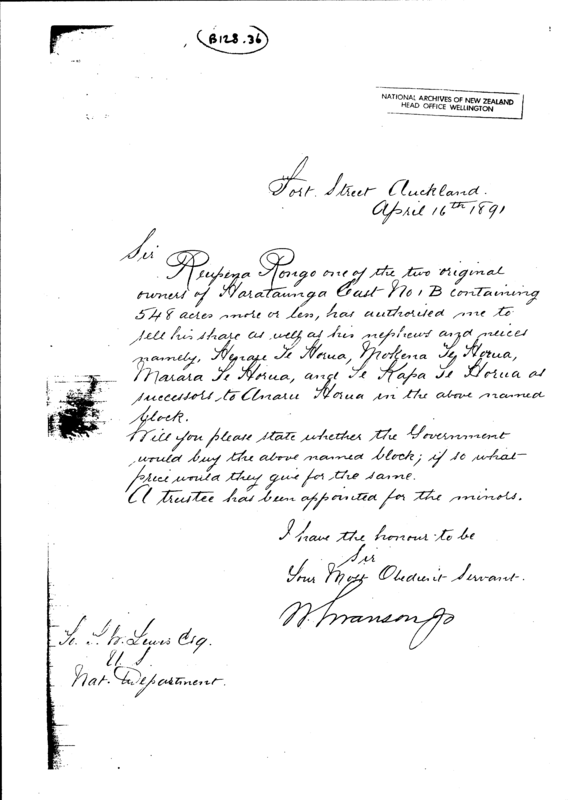 B128.36
NATIONAL ARCHIVES OF NEW ZEALAND
HEAD OFFICE WELLINGTON
Fort Street Auckland.
April 16th 1891
Sir
Reupena Rongo one of the two original
owners of Harataunga East No 1 B containing
548 acres more or less, has authorised me to
sell his share as well as his nephews and neices
namely, Te Horua, Mokena Te Horua,
Marara Te Horua, and Te Kapa Te Horua as
successors to Anaru Horua in the above named
block.
Will you please state whether the Government
would buy the above named block; if so what
price would they give for the same.
A trustee has been appointed for the minors.
I have the honour to be
Sir
Your Most Obedient Servant.
W. Swanson Jr
To. T. W. Lewis Esq.
U. S.
Nat. Department.